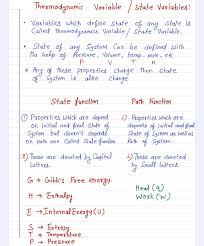 Thermodynamic Variable / State Variables:
• Variables which define state of any state is
Called Thermodynamics Variable / State Variable.
• State of any System Can be defined with
the help of Pressure, Volume, temp., mole, etc
P V T n
* Any of these properties Change then State
of System is also change
State function
Path Function
① Properties which are depend
on Initial and final State of
System but doesn't depends
on path are Called State function
1) Properties which are
depends of initial and final
State of System as well as
Path of System
2) These are denoted by Capital
letters.
2) These are denoted by
Small letters.
G → Gibb's Free energy
H → Enthalpy
E → Internal Energy (U)
S → Entropy
T → Temperature
P → Pressure
Heat (q)
Work (w)